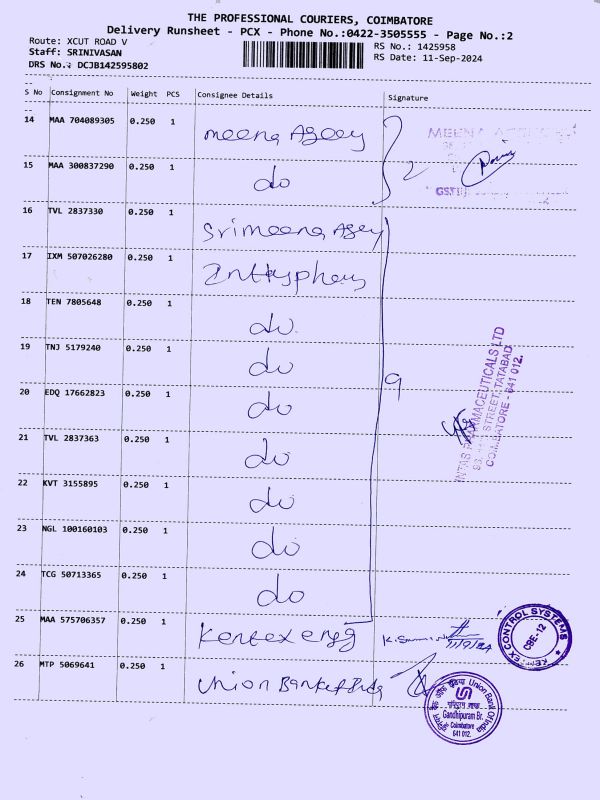 THE PROFESSIONAL COURIERS, COIMBATORE
Delivery Runsheet - PCX - Phone No.:0422-3505555 - Page No.:2
Route: XCUT ROAD V
RS No.: 1425958
Staff: SRINIVASAN
RS Date: 11-Sep-2024
DRS No.: DCJB142595802
S No Consignment No Weight PCS Consignee Details Signature
14 MAA 704089305 0.250 1 meena Agecy
MEENA
15 MAA 300837290 0.250 1 do
2
GSTIN
16 TVL 2837330 0.250 1 Srimeena Agey
17 IXM 507026280 0.250 1 Inttaspheus
18 TEN 7805648 0.250 1 do
19 TNJ 5179240 0.250 1 do
9
20 EDQ 17662823 0.250 1 do
21 TVL 2837363 0.250 1 do
INTAS PHARMACEUTICALS LTD
STREET, TATABAD
COIMBATORE - 641 012.
22 KVT 3155895 0.250 1 do
23 NGL 100160103 0.250 1 do
24 TCG 50713365 0.250 1 do
25 MAA 575706357 0.250 1 Kentex engg
11/9/24
KENTEX CONTROL SYSTEMS
CBE-12
26 MTP 5069641 0.250 1 Union Bank of India
यूनियन बैंक ऑफ इंडिया Union Bank Of India
Gandhipuram Br.
Coimbatore
641 012.